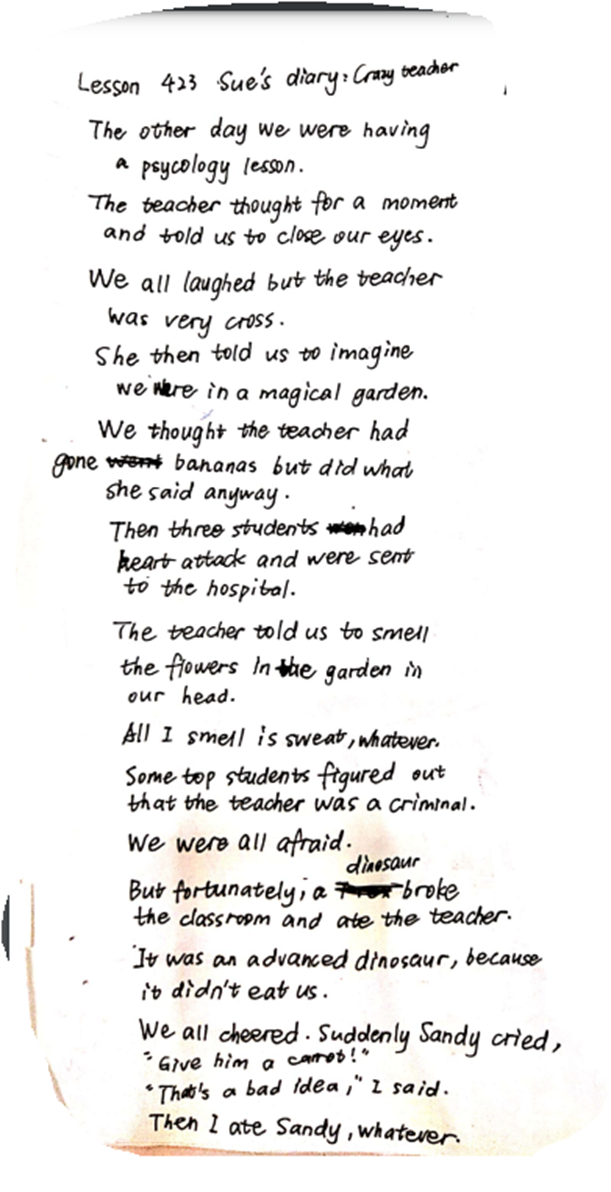 Lesson 423 Sue's diary: Crazy teacher
The other day we were having
a psycology lesson.
The teacher thought for a moment
and told us to close our eyes.
We all laughed but the teacher
was very cross.
She then told us to imagine
we were in a magical garden.
We thought the teacher had
gone went bananas but did what
she said anyway.
Then three students had
heart attack and were sent
to the hospital.
The teacher told us to smell
the flowers in the garden in
our head.
All I smell is sweat, whatever.
Some top students figured out
that the teacher was a criminal.
We were all afraid.
dinosaur
But fortunately, a T-rex broke
the classroom and ate the teacher.
It was an advanced dinosaur, because
it didn't eat us.
We all cheered. Suddenly Sandy cried,
"Give him a carrot!"
"That's a bad idea," I said.
Then I ate Sandy, whatever.